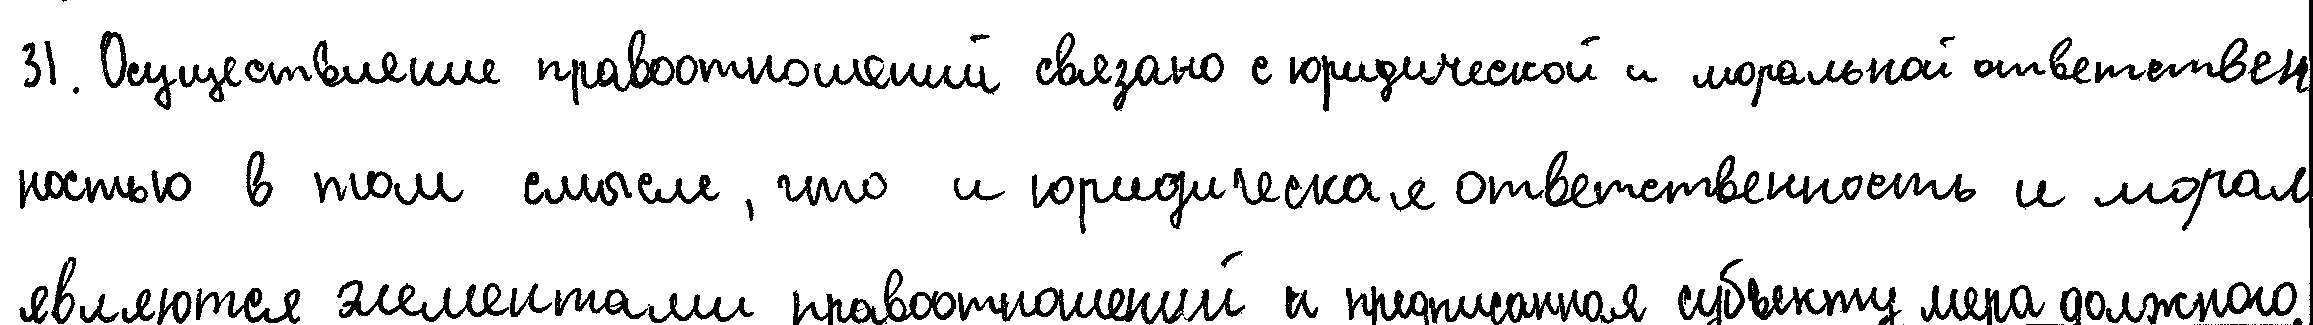 31. Осуществление правоотношений связано с юридической и моральной ответствен
ностью в том смысле, что и юридическая ответственность и морал
являются элементами правоотношений и предписанная субъекту мера должного.